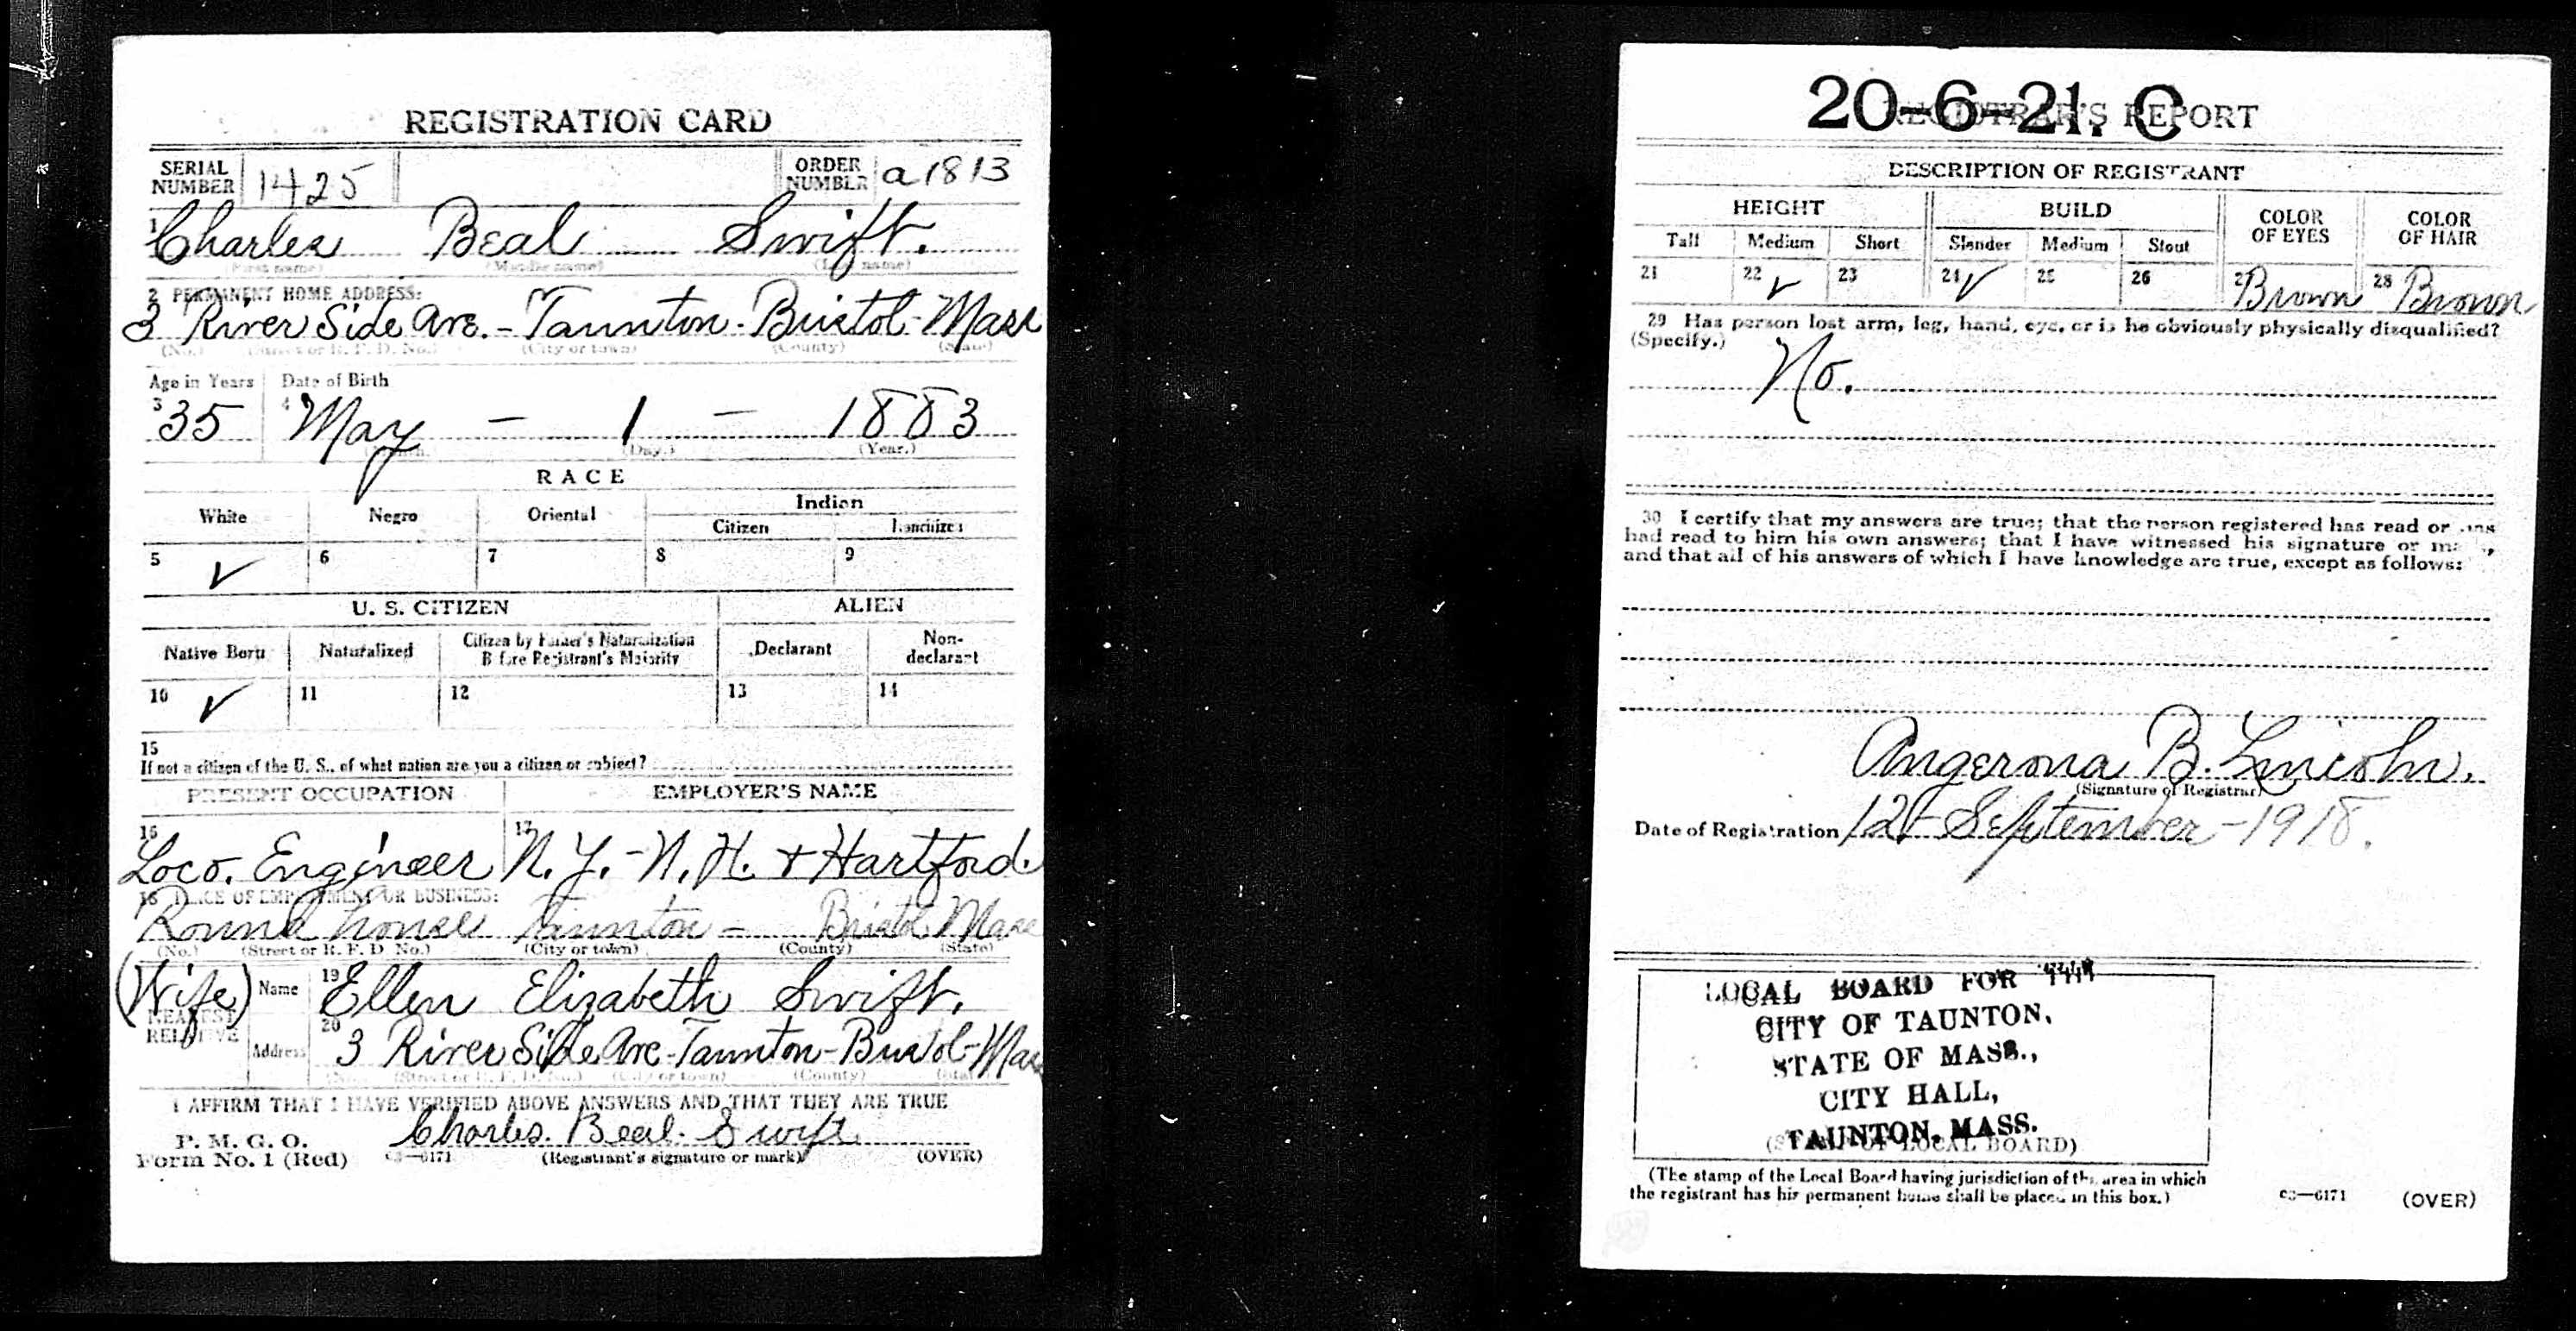 REGISTRATION CARD
SERIAL NUMBER 1425 ORDER NUMBER a1813
1 Charles Beal Swift.
(First name) (Middle name) (Last name)
2 PERMANENT HOME ADDRESS:
3 River Side Ave. - Taunton - Bristol - Mass
(No.) (Street or R. F. D. No.) (City or town) (County) (State)
Age in Years Date of Birth
3 35 4 May - 1 - 1883
(Month.) (Day.) (Year.)
RACE
White Negro Oriental Indian
Citizen Noncitizen
5 ✓ 6 7 8 9
U. S. CITIZEN ALIEN
Native Born Naturalized Citizen by Father's Naturalization Before Registrant's Majority Declarant Non-declarant
10 ✓ 11 12 13 14
15
If not a citizen of the U. S., of what nation are you a citizen or subject?
PRESENT OCCUPATION EMPLOYER'S NAME
16 Loco. Engineer 17 N. Y. - N. H. & Hartford.
18 PLACE OF EMPLOYMENT OR BUSINESS:
Round house Taunton - Bristol Mass
(No.) (Street or R. F. D. No.) (City or town) (County) (State)
(Wife) NEAREST RELATIVE Name 19 Ellen Elizabeth Swift.
Address 20 3 River Side Ave - Taunton - Bristol - Mass
(No.) (Street or R. F. D. No.) (City or town) (County) (State)
I AFFIRM THAT I HAVE VERIFIED ABOVE ANSWERS AND THAT THEY ARE TRUE
P. M. G. O.
Form No. 1 (Red) Charles. Beal. Swift
03—6171 (Registrant's signature or mark) (OVER)
20-6-21. C
REGISTRAR'S REPORT
DESCRIPTION OF REGISTRANT
HEIGHT BUILD COLOR OF EYES COLOR OF HAIR
Tall Medium Short Slender Medium Stout
21 22 ✓ 23 24 ✓ 25 26 27 Brown 28 Brown
29 Has person lost arm, leg, hand, eye, or is he obviously physically disqualified?
(Specify.) No.
30 I certify that my answers are true; that the person registered has read or has
had read to him his own answers; that I have witnessed his signature or mark,
and that all of his answers of which I have knowledge are true, except as follows:
Angerona B. Lincoln.
(Signature of Registrar)
Date of Registration 12 - September - 1918.
LOCAL BOARD FOR THE
CITY OF TAUNTON,
STATE OF MASS.,
CITY HALL,
TAUNTON, MASS.
(STAMP OF LOCAL BOARD)
(The stamp of the Local Board having jurisdiction of the area in which
the registrant has his permanent home shall be placed in this box.)
03—6171 (OVER)